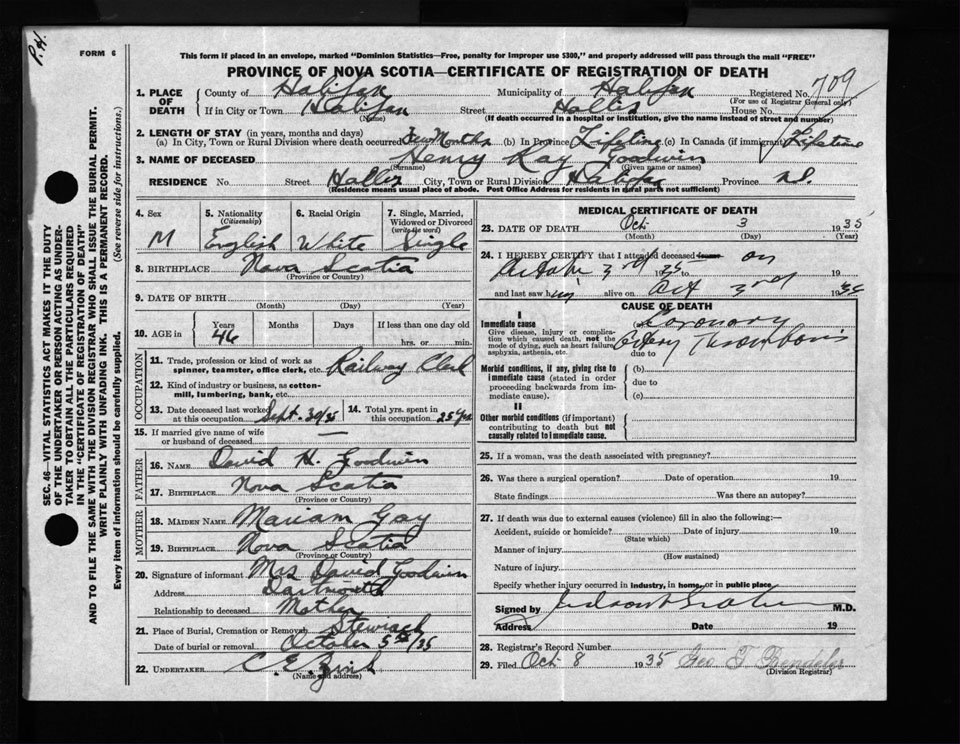 P.H.
FORM 6
This form if placed in an envelope, marked "Dominion Statistics—Free, penalty for improper use $300," and properly addressed will pass through the mail "FREE"
PROVINCE OF NOVA SCOTIA—CERTIFICATE OF REGISTRATION OF DEATH
709
1. PLACE OF DEATH
County of Halifax Municipality of Halifax Registered No.
(For use of Registrar General only)
If in City or Town Halifax Street Hollis House No.
(Name) (If death occurred in a hospital or institution, give the name instead of street and number)
2. LENGTH OF STAY (in years, months and days)
(a) In City, Town or Rural Division where death occurred Few Months (b) In Province Lifetime (c) In Canada (if immigrant) Lifetime
3. NAME OF DECEASED Henry Kay Goodwin
(Surname) (Given name or names)
RESIDENCE No. Street Hollis City, Town or Rural Division Halifax Province N.S.
(Residence means usual place of abode. Post Office Address for residents in rural parts not sufficient)
4. Sex
M
5. Nationality
(Citizenship)
English
6. Racial Origin
White
7. Single, Married, Widowed or Divorced
(write the word)
Single
8. BIRTHPLACE Nova Scotia
(Province or Country)
9. DATE OF BIRTH
(Month) (Day) (Year)
10. AGE in
Years Months Days If less than one day old
46 hrs. or min.
OCCUPATION
11. Trade, profession or kind of work as
spinner, teamster, office clerk, etc. Railway Clerk
12. Kind of industry or business, as cotton-
mill, lumbering, bank, etc.
13. Date deceased last worked
at this occupation Sept. 30/35
14. Total yrs. spent in
this occupation 25 yrs
15. If married give name of wife
or husband of deceased —
FATHER
16. NAME David H. Goodwin
17. BIRTHPLACE Nova Scotia
(Province or Country)
MOTHER
18. MAIDEN NAME Mariam Gay
19. BIRTHPLACE Nova Scotia
(Province or Country)
20. Signature of informant Mrs David Goodwin
Address Dartmouth
Relationship to deceased Mother
21. Place of Burial, Cremation or Removal
Date of burial or removal October 5th/35
22. UNDERTAKER C.E.
(Name and address)
MEDICAL CERTIFICATE OF DEATH
23. DATE OF DEATH Oct 3 1935
(Month) (Day) (Year)
24. I HEREBY CERTIFY that I attended deceased from on
October 3rd 1935 to 19
and last saw him alive on Oct 3rd 1935
CAUSE OF DEATH
I
Immediate cause
Give disease, injury or complica-
tion which caused death, not the
mode of dying, such as heart failure,
asphyxia, asthenia, etc.
(a) Coronary
Artery Thrombosis
due to
Morbid conditions, if any, giving rise to
immediate cause (stated in order
proceeding backwards from im-
mediate cause).
(b)
due to
(c)
II
Other morbid conditions (if important)
contributing to death but not
causally related to immediate cause.
25. If a woman, was the death associated with pregnancy?
26. Was there a surgical operation? Date of operation 19
State findings Was there an autopsy?
27. If death was due to external causes (violence) fill in also the following:—
Accident, suicide or homicide? Date of injury 19
(State which)
Manner of injury
(How sustained)
Nature of injury
Specify whether injury occurred in industry, in home, or in public place.
Signed by M.D.
Address Date 19
28. Registrar's Record Number
29. Filed Oct 8 1935 Geo T.
(Division Registrar)
SEC. 46—VITAL STATISTICS ACT MAKES IT THE DUTY
OF THE UNDERTAKER OR PERSON ACTING AS UNDER-
TAKER TO OBTAIN ALL THE PARTICULARS REQUIRED
IN THE "CERTIFICATE OF REGISTRATION OF DEATH"
AND TO FILE THE SAME WITH THE DIVISION REGISTRAR WHO SHALL ISSUE THE BURIAL PERMIT.
WRITE PLAINLY WITH UNFADING INK. THIS IS A PERMANENT RECORD.
Every item of information should be carefully supplied. (See reverse side for instructions.)